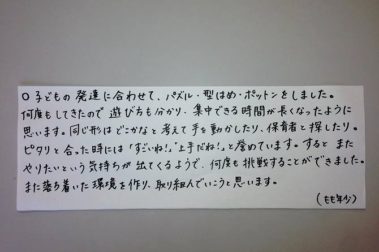 ○子どもの発達に合わせて、パズル・型はめ・ポットンをしました。
何度もしてきたので遊び方も分かり、集中できる時間が長くなったように
思います。同じ形はどこかなと考えて手を動かしたり、保育者と探したり。
ピタリと合った時には「すごいね!」「上手だね!」と誉めています。すると また
やりたいという気持ちが出てくるようで、何度も挑戦することができました。
また落ち着いた環境を作り、取り組んでいこうと思います。
(もも年少)